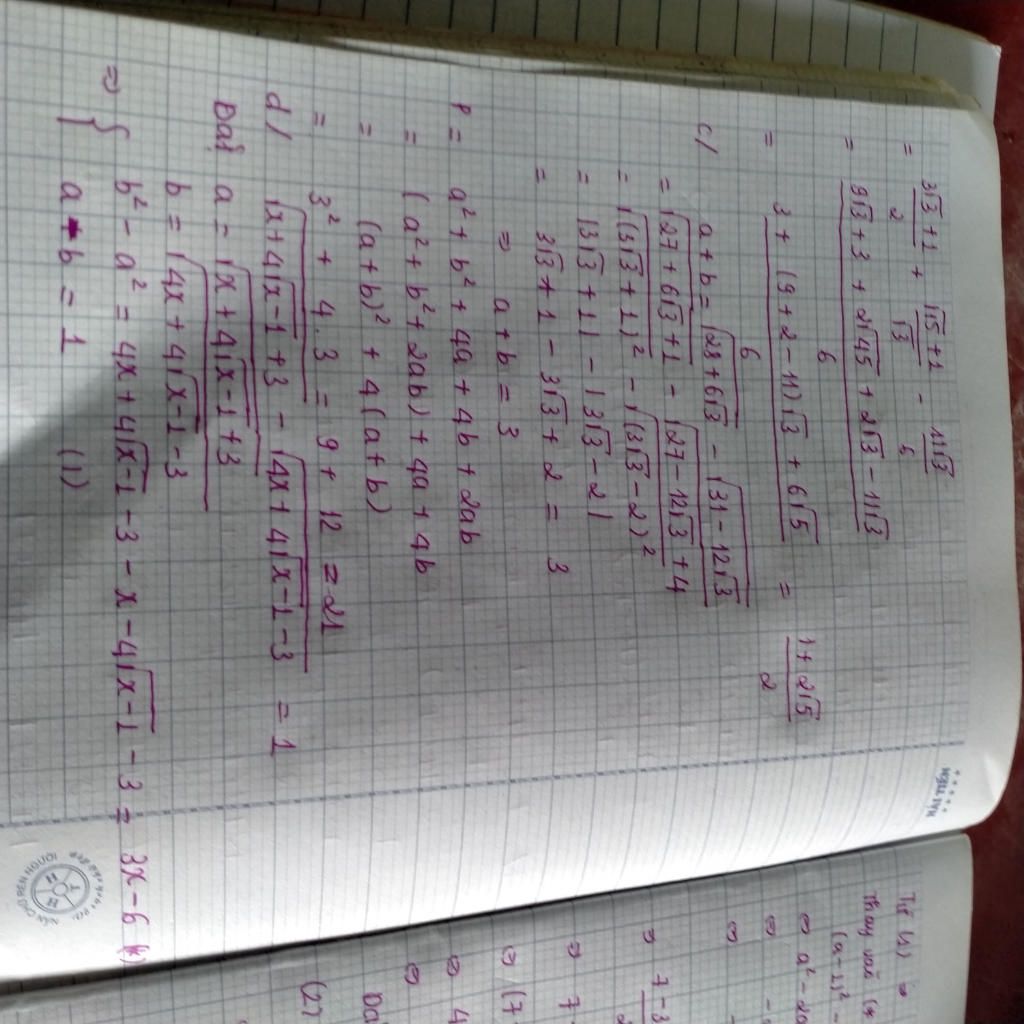 = (3√3 + 1)/2 + (√15 + 1)/√3 − 11√3/6
= (9√3 + 3 + 2√45 + 2√3 − 11√3)/6
= (3 + (9 + 2 − 11)√3 + 6√5)/6 = (1 + 2√5)/2
c/ a + b = √(28 + 6√3) − √(31 − 12√3)
= √(27 + 6√3 + 1) − √(27 − 12√3 + 4)
= √((3√3 + 1)²) − √((3√3 − 2)²)
= |3√3 + 1| − |3√3 − 2|
= 3√3 + 1 − 3√3 + 2 = 3
⇒ a + b = 3
P = a² + b² + 4a + 4b + 2ab
= (a² + b² + 2ab) + 4a + 4b
= (a + b)² + 4(a + b)
= 3² + 4.3 = 9 + 12 = 21
d/ √(x + 4√(x − 1) + 3) − √(4x + 4√(x − 1) − 3) = 1
Đặt a = √(x + 4√(x − 1) + 3)
b = √(4x + 4√(x − 1) − 3)
⇒ { b² − a² = 4x + 4√(x − 1) − 3 − x − 4√(x − 1) − 3 = 3x − 6 (*)
a − b = 1 (1)
HẢI TIẾN
NẮN CHỮ RÈN NGƯỜI
Từ (1) ⇒
Thay vào (*
(a − 1)² −
⇔ a² − 2a
⇔
⇔
⇒ 7 − 3
⇒ 7
⇔ (7
⇔ 4
⇔
(2)